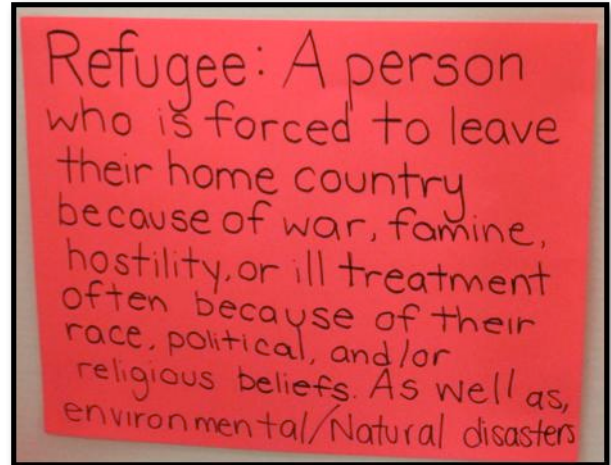 Refugee: A person
who is forced to leave
their home country
because of war, famine,
hostility, or ill treatment
often because of their
race, political, and/or
religious beliefs. As well as,
environmental/Natural disasters